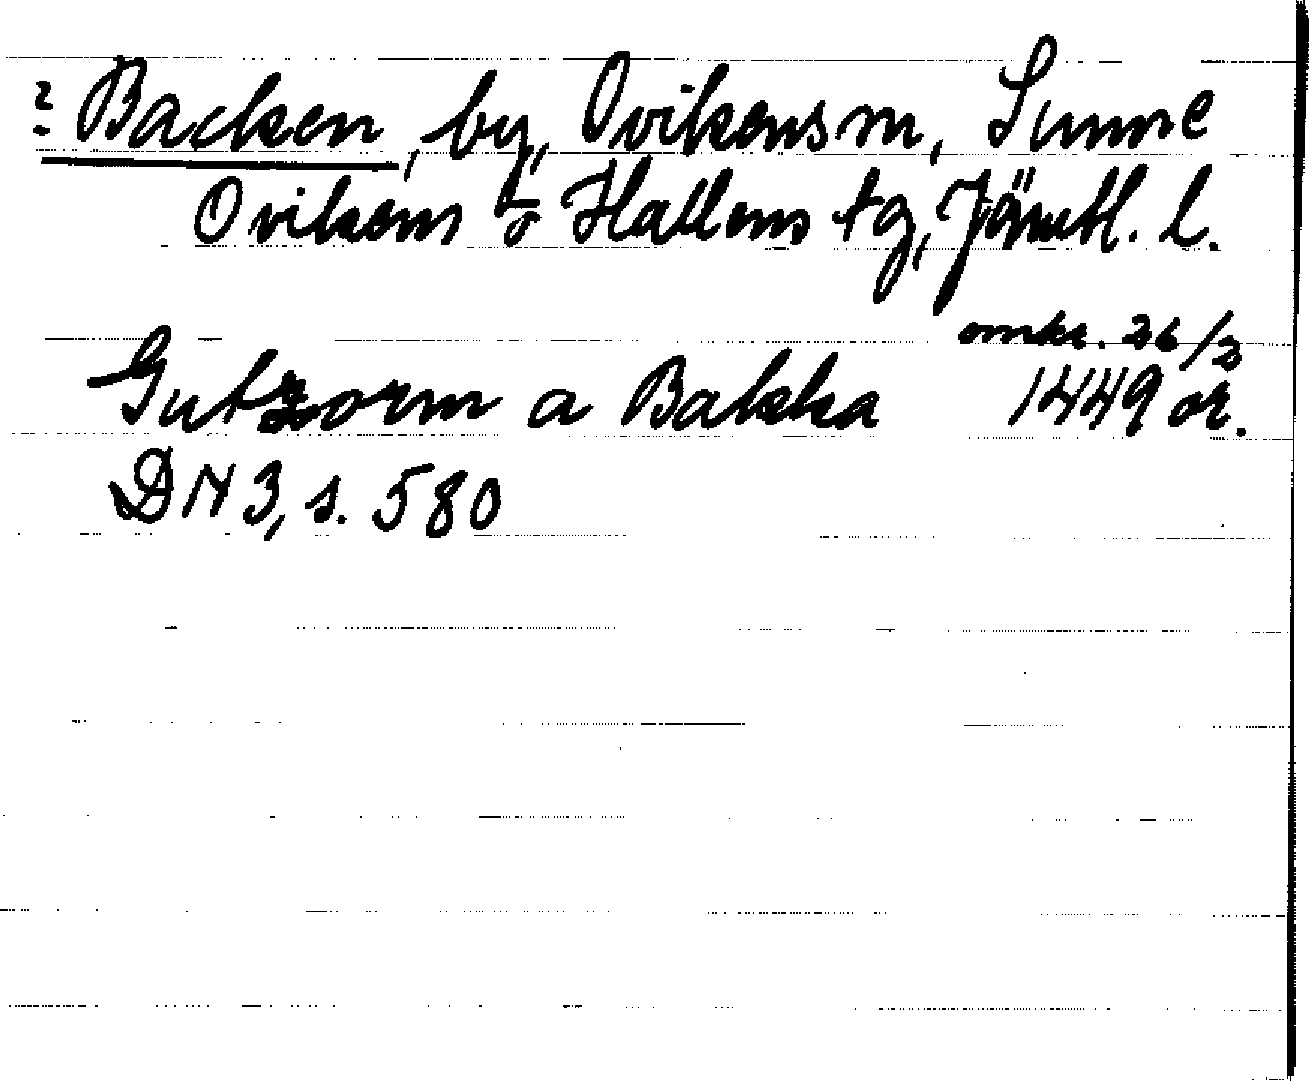 ? Backen, by, Ovikens sn, Sunne
Ovikens o Hallens tg, Jämtl. l.
omkr. 26/3
Gutzorm a Bakka 1449 or.
DN 3, s. 580